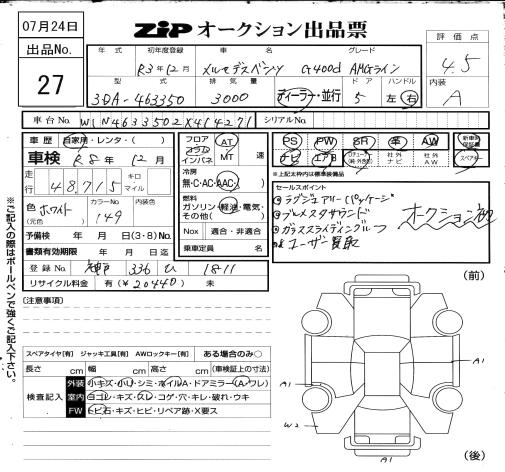 07月24日
ZIP オークション出品票
出品No.
27
年式 初年度登録 車名 グレード
R3年12月 メルセデスベンツ G400d AMGライン
評価点
4.5
型式 排気量 ドア ハンドル
3DA-463350 3000 ディーラー・並行 5 左 右
内装
A
車台No. W1N4633502X414271 シリアルNo.
車歴 自家用・レンタ・( )
車検 R8年12月
走行 48,715 キロ マイル
色 ホワイト (元色) カラーNo. 149 内装色
予備検 年 月 日(3・8)No.
書類有効期限 年 月 日迄
登録No. 神戸 336 ひ 1811
リサイクル料金 有(¥20440) 未
フロア コラム インパネ AT MT 速
冷房 無・C・AC・AAC
燃料 ガソリン・軽油・電気・その他( )
Nox 適合・非適合
乗車定員 名
PS PW SR 革 AW 新車時保証書
ナビ エアB 社外ナビ 社外AW スペアキー
※上記太枠内は標準装備品
セールスポイント
ラグジュアリーPackage
ブルメスタサウンド
ガラススライディングルーフ
ユーザー買取
オークション初
※ご記入の際はボールペンで強くご記入下さい。
(注意事項)
スペアタイヤ[有] ジャッキ工具[有] AWロックキー[有] ある場合のみ○
長さ cm 幅 cm 高さ cm (車検証上の寸法)
検査記入
外装 小キズ・小U・シミ・ホイルA・ドアミラー(A・ワレ)
室内 ヨゴレ・キズ・スレ・コゲ・穴・キレ・破れ・ウキ
FW トビ石・キズ・ヒビ・リペア跡・X要ス
(前)
A1
A1
W2
A1
(後)